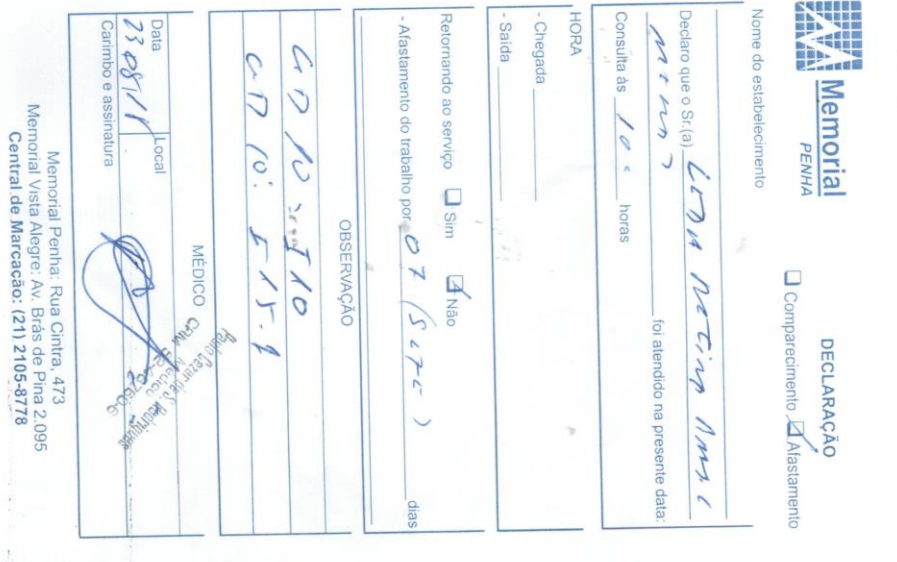 Memorial
PENHA
DECLARAÇÃO
Comparecimento Afastamento
Nome do estabelecimento
Declaro que o Sr.(a)
foi atendido na presente data:
Consulta às horas
HORA
- Chegada
- Saída
Retornando ao serviço Sim Não
- Afastamento do trabalho por 07 (Sete) dias
OBSERVAÇÃO
CID 10: I10
CID 10: I15.9
MÉDICO
Data Local
23 08
Carimbo e assinatura
Médico
Memorial Penha: Rua Cintra, 473
Memorial Vista Alegre: Av. Brás de Pina 2.095
Central de Marcação: (21) 2105-8778